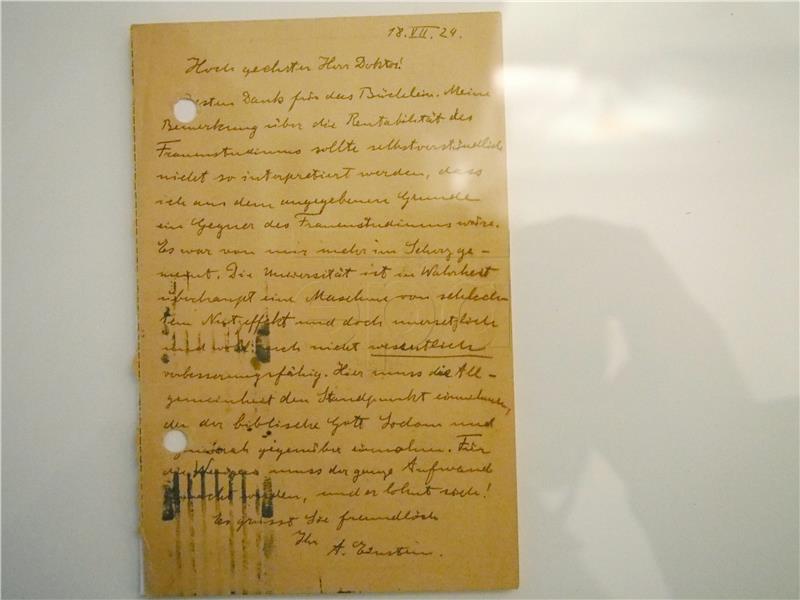 18.VII.24.
Hoch geehrter Herr Doktor!
Besten Dank für das Büchlein. Meine
Bemerkung über die Rentabilität des
Frauenstudiums sollte selbstverständlich
nicht so interpretiert werden, dass
ich aus dem angegebenen Grunde
ein Gegner des Frauenstudiums wäre.
Es war von mir mehr im Scherz ge-
meint. Die Universität ist in Wahrheit
überhaupt eine Maschine von schlech-
tem Nutzeffekt und doch unersetzlich
und auch nicht wesentlich
verbesserungsfähig. Hier muss die All-
gemeinheit den Standpunkt einnehmen,
den der biblische Gott Sodom und
Gomorah gegenüber einnahm. Für
die Wenigen muss der ganze Aufwand
gemacht werden, und er lohnt sich!
Es grüsst Sie freundlich
Ihr
A. Einstein.